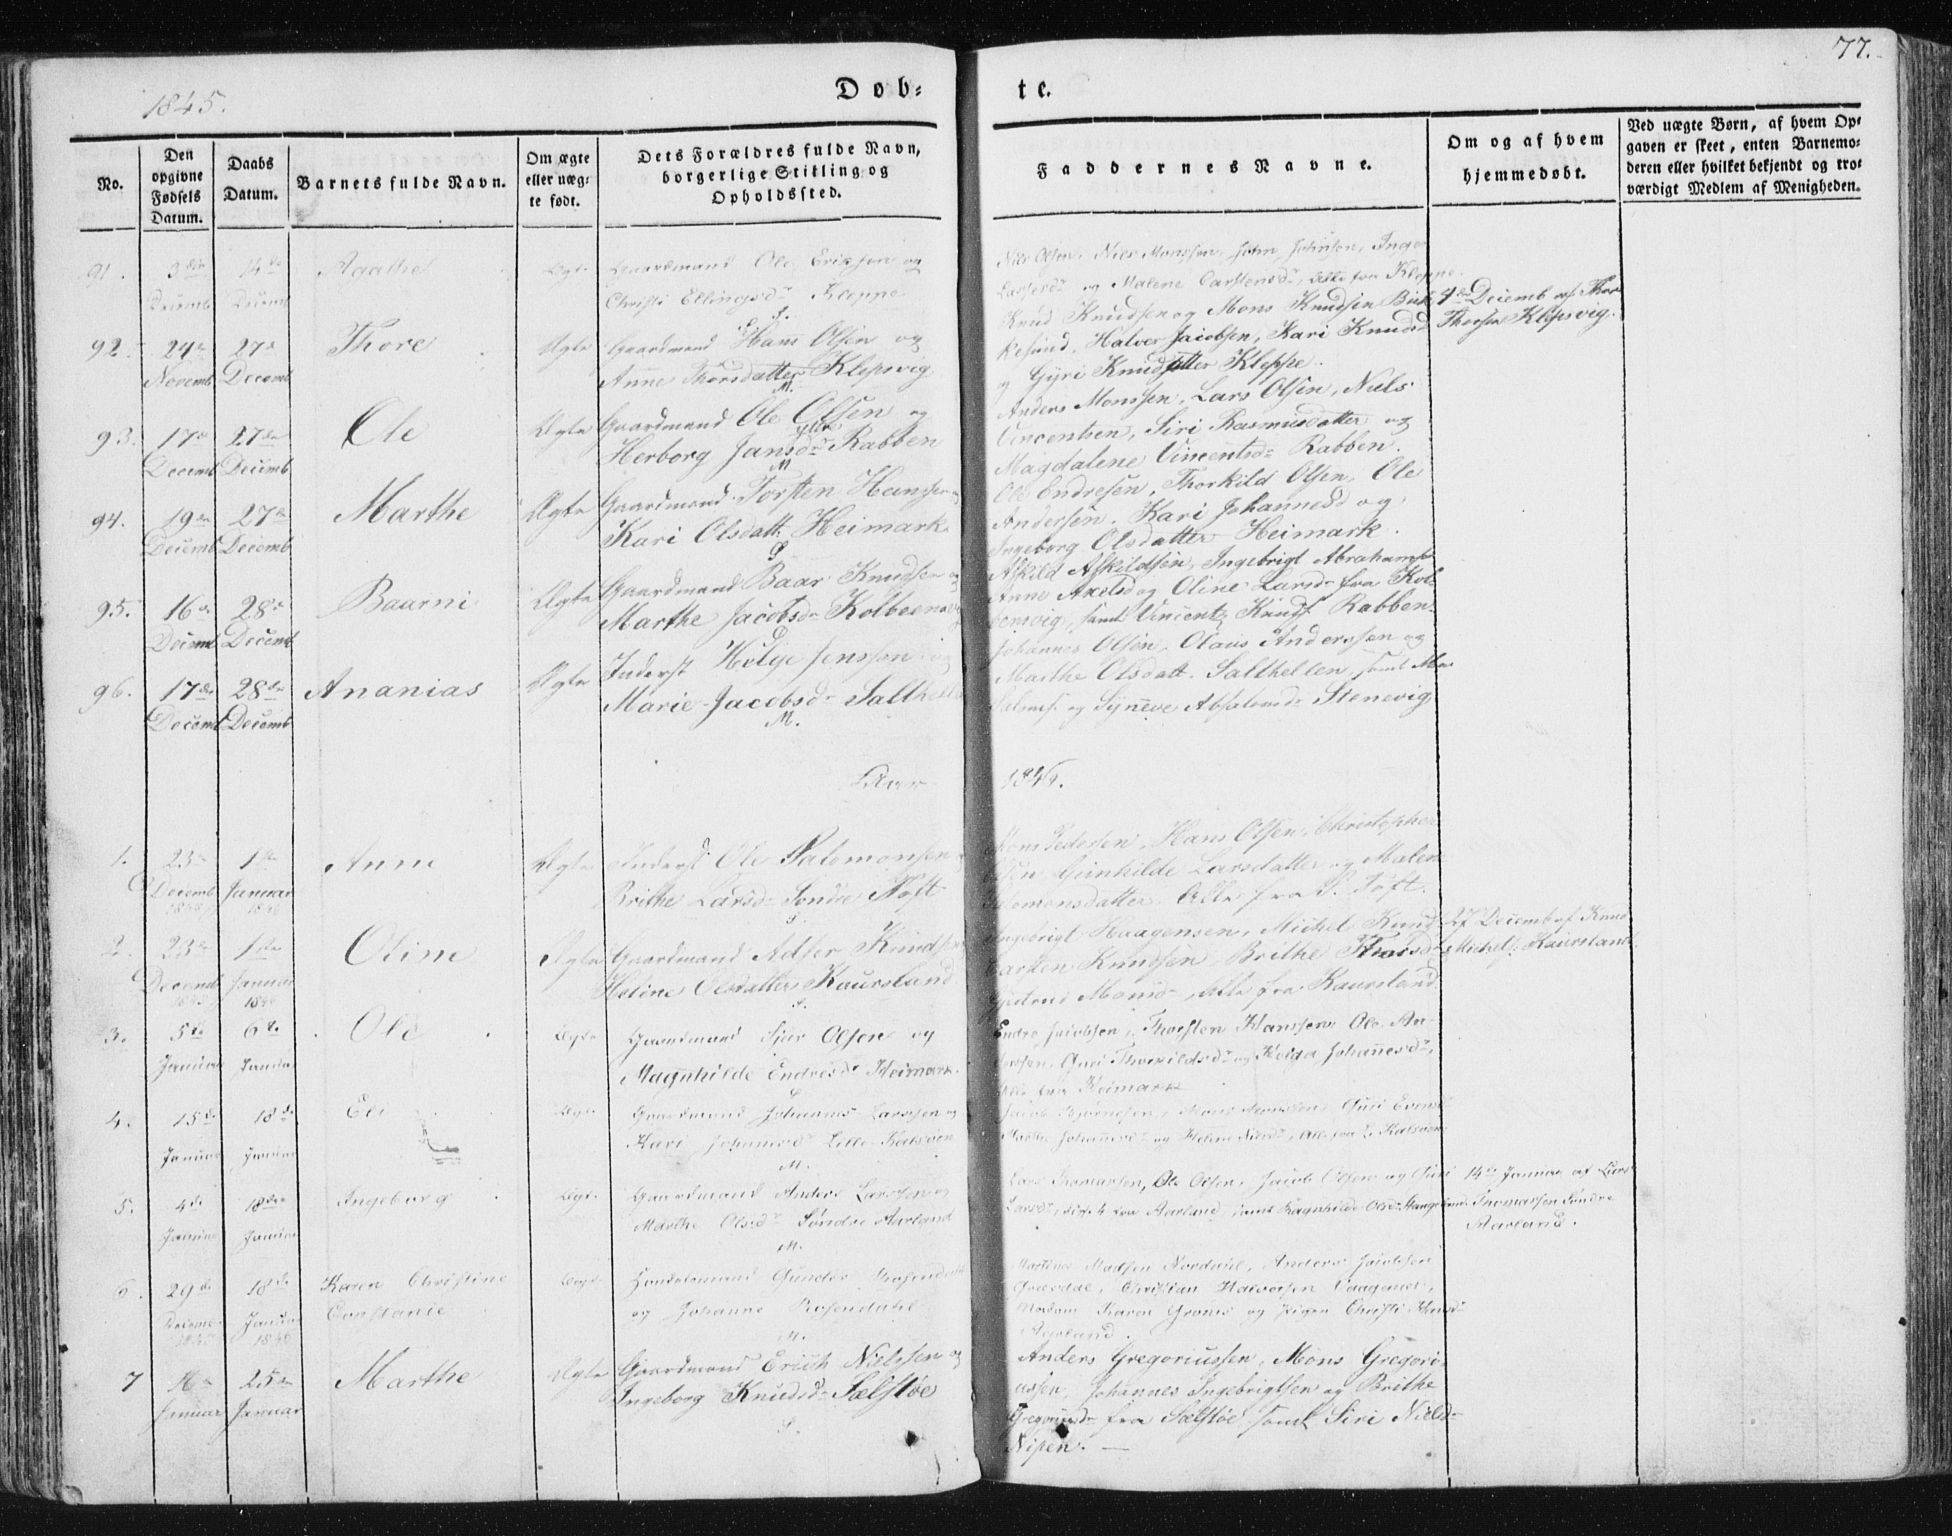 77.
1845.
Dob-
te.
No.
Den opgivne Fødsels Datum.
Daabs Datum.
Barnets fulde Navn.
Om ægte eller uæg- te født.
Dets Forældres fulde Navn, borgerlige Stilling og Opholdssted.
Faddernes Navne.
Om og af hvem hjemmedøbt.
Ved uægte Børn, af hvem Op- gaven er skeet, enten Barnemo- deren eller hvilket bekjendt og tro- værdigt Medlem af Menigheden.
91. 3die Decemb 14de Decemb Agathe Ægte Gaardmand Ole Eriksen og
Christi Ellingsdr Kleppe
Nils Olsen, Nils Monssen, John Johnsen, Inger
Larsesdr og Malene Carstensdr, alle fra Kleppe.
92. 24de Novemb 27de Decemb Thore Ægte Gaardmand Hans Olsen og
Anne Thorsdatter Klepsvig
Knud Knudsen og Mons Knudsen Birk-
kesund, Halver Jacobsen, Kari Knudsd
og Gyri Knudsdatter Kleppe.
4de Decemb af Thor
Thorsen Klepsvig.
93. 17de Decemb 27de Decemb Ole Ægte Gaardmand Ole Olsen og
Herborg Jansdr Rabben
Anders Monssen, Lars Olsen, Niels
Vincentsen, Siri Rasmusdatter og
Magdalene Vincentsdr Rabben.
94. 19de Decemb 27de Decemb Marthe Ægte Gaardmand Torsten Hanssen og
Kari Olsdatt. Heimark
Ole Endresen, Thorkild Olsen, Ole
Andersen, Kari Johannesd og
Ingeborg Olsdatter Heimark.
95. 16de Decemb 28de Decemb Baarni Ægte Gaardmand Baar Knudsen og
Marthe Jacobsdr Kolbeensvig
Askild Askildsen, Ingebrigt Abrahams
Anne Axelsd og Oline Larsdr fra Kol-
beensvig, samt Vincent Knuds. Rabben.
96. 17de Decemb 28de Decemb Ananias Ægte Inderst Helge Jenssen og
Marie Jacobsdr Salthelle
M.
Johannes Olsen, Olaus Anderssen og
Marthe Olsdatt. Salthellen, samt
og Synneve Absalomsdr Stenevig
Aar
1846.
1. 23de Decemb 1845 1ste Januar 1846 Anne Ægte Inderst Ole Salomonsen
Brithe Larsdr Søndre Toft
S.
Mons Pedersen, Hans Olsen, Christopher
Olsen, Gunhilde Larsdatter og Malene
Salomonsdatter. Alle fra S. Toft.
2. 23de Decemb 1845 1ste Januar 1846 Oline Ægte Gaardmand Adser Knudsen
Helene Olsdatter Kaursland
S.
Ingebrigt Haagensen, Michel Knuds
Carsten Knudsen, Brithe Thorsdr
Gjertrud Monsdr, Alle fra Kaursland
27 Decemb af Knud
Michels. Kaursland
3. 5te Januar 6te Januar Ole Ægte Gaardmand Sjur Olsen og
Magnhilde Endresdr Heimark.
Endre Jacobsen, Thorsten Hanssen, Ole An-
dersen, Guri Thorkildsdr og Helga Johannesdr,
Alle fra Heimark
4. 15de Januar 18de Januar Eli Ægte Gaardmand Johannes Larssen og
Kari Johannesdr Lille Kalsøen
M.
Jacob Bjørnesen, Mons Monssen, Guri Evensd
Marthe Johannesdr og Helene Nielsdr, Alle fra L. Kalsøen
5. 4de Januar 18de Januar Ingeborg Ægte Gaardmand Anders Larssen og
Marthe Olsdr Søndre Aarland
M.
Lars Thomassen, Ole Olsen, Jacob Olsen og Guri
Larsdr, disse 4 fra Aarland, samt Ragnhilde Olsdr Hangeland
14de Januar af Lars
Thomassen Søndre
Aarland.
6. 29de Decemb 1845 18de Januar 1846 Karen Christine
Constance
Ægte Handelsmand Gunder Rosendahl
og Johanne Rosendahl
M.
Martines Madsen Nordahl, Anders Jacobsen
Græsdal, Christian Halvorsen Vaagenes,
Madam Karen Groms og Pigen Christi Hansdr
Aarland.
7 16de Januar 25de Januar Marthe Ægte Gaardmand Erich Nielssen og
Ingeborg Knudsdr Sælstøe
S.
Anders Gregoriussen, Mons Gregori-
ussen, Johannes Ingebrigtsen og Brithe
Gregoriusdr fra Sælstøe samt Siri Nielsdr
Nipen.